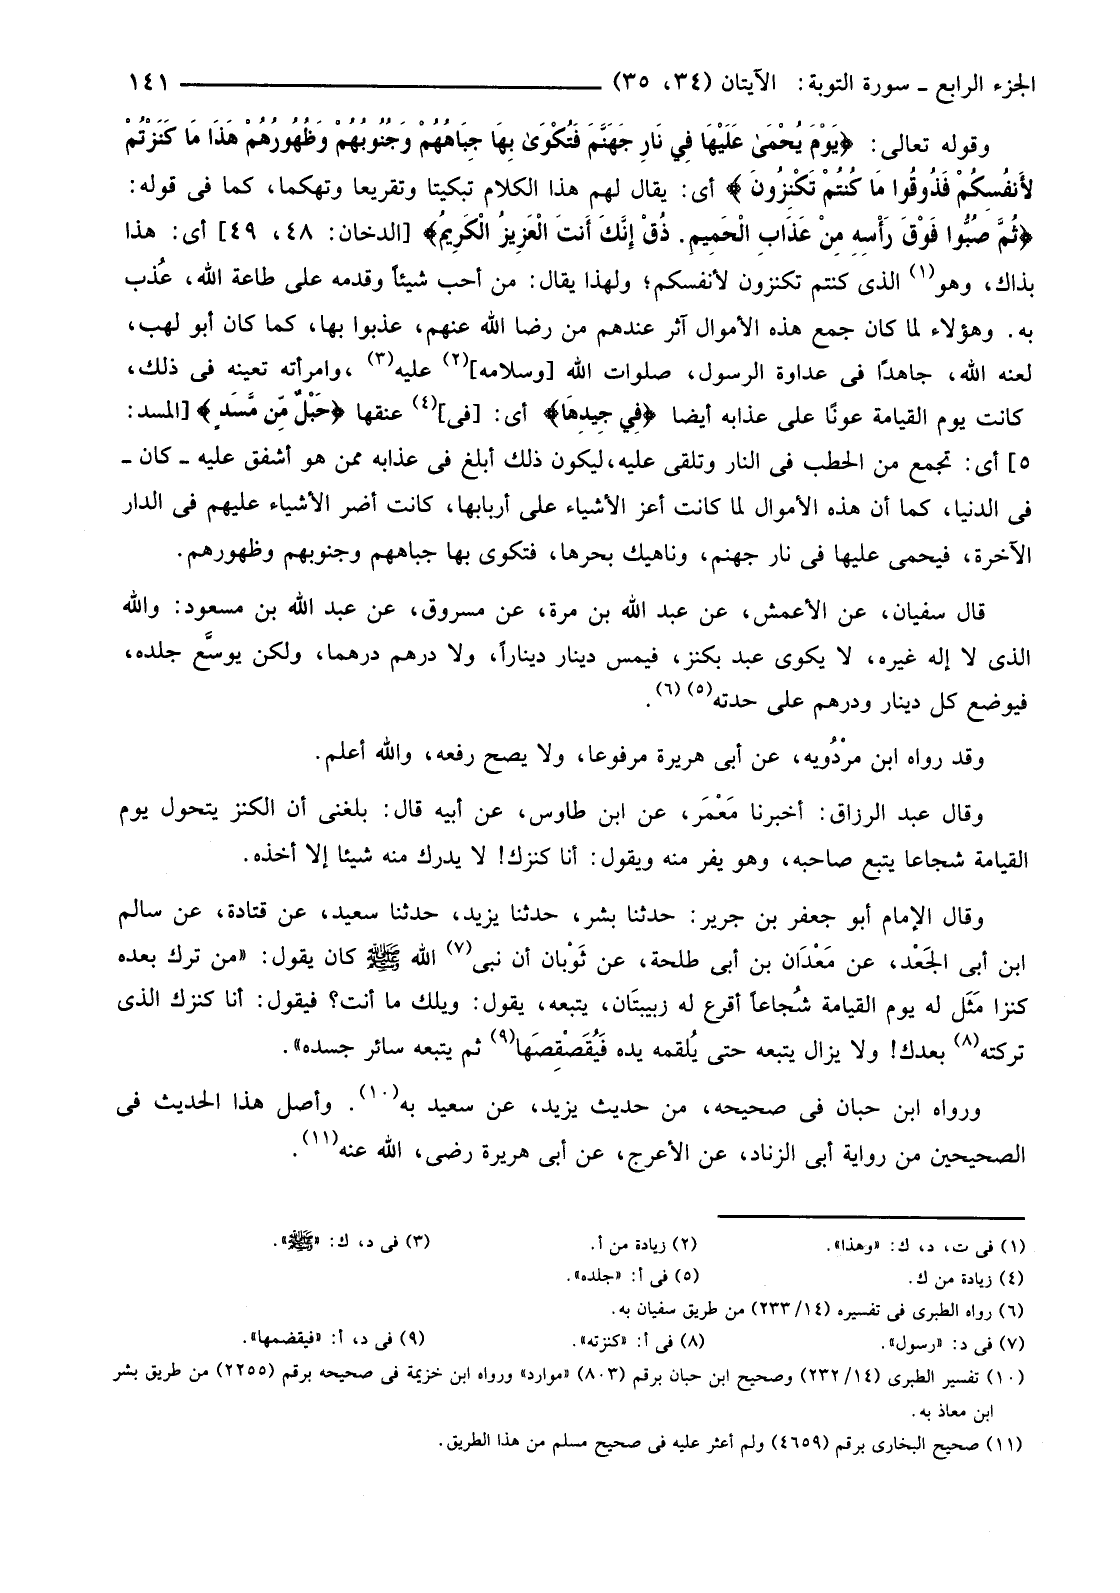 الجزء الرابع ـ سورة التوبة: الآيتان (٣٤، ٣٥) ١٤١
وقوله تعالى: ﴿يَوْمَ يُحْمَىٰ عَلَيْهَا فِي نَارِ جَهَنَّمَ فَتُكْوَىٰ بِهَا جِبَاهُهُمْ وَجُنُوبُهُمْ وَظُهُورُهُمْ هَذَا مَا كَنَزْتُمْ
لأَنفُسِكُمْ فَذُوقُوا مَا كُنتُمْ تَكْنِزُونَ﴾ أى: يقال لهم هذا الكلام تبكيتا وتقريعا وتهكما، كما فى قوله:
﴿ثُمَّ صُبُّوا فَوْقَ رَأْسِهِ مِنْ عَذَابِ الْحَمِيمِ. ذُقْ إِنَّكَ أَنتَ الْعَزِيزُ الْكَرِيمُ﴾ [الدخان: ٤٨، ٤٩] أى: هذا
بذاك، وهو(١) الذى كنتم تكنزون لأنفسكم؛ ولهذا يقال: من أحب شيئاً وقدمه على طاعة الله، عُذب
به. وهؤلاء لما كان جمع هذه الأموال آثر عندهم من رضا الله عنهم، عذبوا بها، كما كان أبو لهب،
لعنه الله، جاهدًا فى عداوة الرسول، صلوات الله [وسلامه](٢) عليه(٣) ،وامرأته تعينه فى ذلك،
كانت يوم القيامة عونًا على عذابه أيضا ﴿فِي جِيدِهَا﴾ أى: [فى](٤) عنقها ﴿حَبْلٌ مِّن مَّسَدٍ﴾ [المسد:
٥] أى: تجمع من الحطب فى النار وتلقى عليه،ليكون ذلك أبلغ فى عذابه ممن هو أشفق عليه ـ كان ـ
فى الدنيا، كما أن هذه الأموال لما كانت أعز الأشياء على أربابها، كانت أضر الأشياء عليهم فى الدار
الآخرة، فيحمى عليها فى نار جهنم، وناهيك بحرها، فتكوى بها جباههم وجنوبهم وظهورهم.
قال سفيان، عن الأعمش، عن عبد الله بن مرة، عن مسروق، عن عبد الله بن مسعود: والله
الذى لا إله غيره، لا يكوى عبد بكنز، فيمس دينار ديناراً، ولا درهم درهما، ولكن يوسَّع جلده،
فيوضع كل دينار ودرهم على حدته(٥) (٦).
وقد رواه ابن مرْدُويه، عن أبى هريرة مرفوعا، ولا يصح رفعه، والله أعلم.
وقال عبد الرزاق: أخبرنا مَعْمَر، عن ابن طاوس، عن أبيه قال: بلغنى أن الكنز يتحول يوم
القيامة شجاعا يتبع صاحبه، وهو يفر منه ويقول: أنا كنزك! لا يدرك منه شيئا إلا أخذه.
وقال الإمام أبو جعفر بن جرير: حدثنا بشر، حدثنا يزيد، حدثنا سعيد، عن قتادة، عن سالم
ابن أبى الجَعْد، عن مَعْدَان بن أبى طلحة، عن ثَوْبان أن نبى(٧) الله ﷺ كان يقول: «من ترك بعده
كنزا مَثَل له يوم القيامة شُجاعاً أقرع له زبيبتَان، يتبعه، يقول: ويلك ما أنت؟ فيقول: أنا كنزك الذى
تركته(٨) بعدك! ولا يزال يتبعه حتى يُلقمه يده فَيُقَصْقِصَها(٩) ثم يتبعه سائر جسده».
ورواه ابن حبان فى صحيحه، من حديث يزيد، عن سعيد به(١٠). وأصل هذا الحديث فى
الصحيحين من رواية أبى الزناد، عن الأعرج، عن أبى هريرة رضى، الله عنه(١١).
(١) فى ت، د، ك: «وهذا». (٢) زيادة من أ. (٣) فى د، ك: «ﷺ».
(٤) زيادة من ك. (٥) فى أ: «جلده».
(٦) رواه الطبرى فى تفسيره (٢٣٣/١٤) من طريق سفيان به.
(٧) فى د: «رسول». (٨) فى أ: «كنزته». (٩) فى د، أ: «فيقضمها».
(١٠) تفسير الطبرى (٢٣٢/١٤) وصحيح ابن حبان برقم (٨٠٣) «موارد» ورواه ابن خزيمة فى صحيحه برقم (٢٢٥٥) من طريق بشر
ابن معاذ به.
(١١) صحيح البخارى برقم (٤٦٥٩) ولم أعثر عليه فى صحيح مسلم من هذا الطريق.